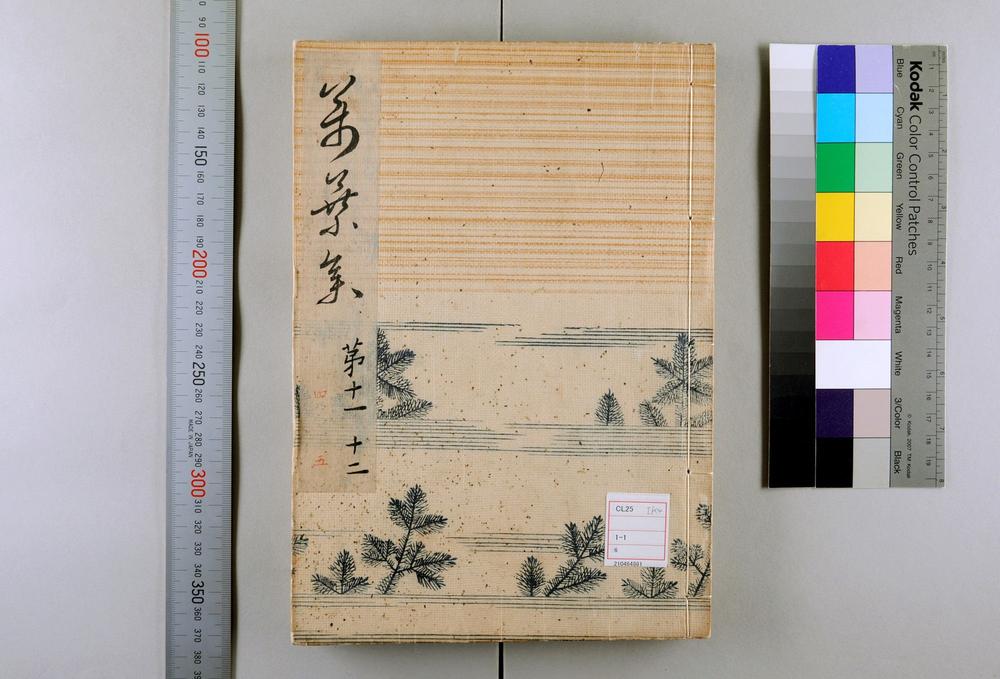 萬葉集
第十一
十二
四
五
CL25
1-1
6
210464881
Kodak Color Control Patches
Blue
Cyan
Green
Yellow
Red
Magenta
White
3/Color
Black
© Kodak, 2007 TM: Kodak
90
100
110
120
130
140
150
160
170
180
190
200
210
220
230
240
250
260
270
280
290
300
310
320
330
340
350
360
370
380
MADE IN JAPAN